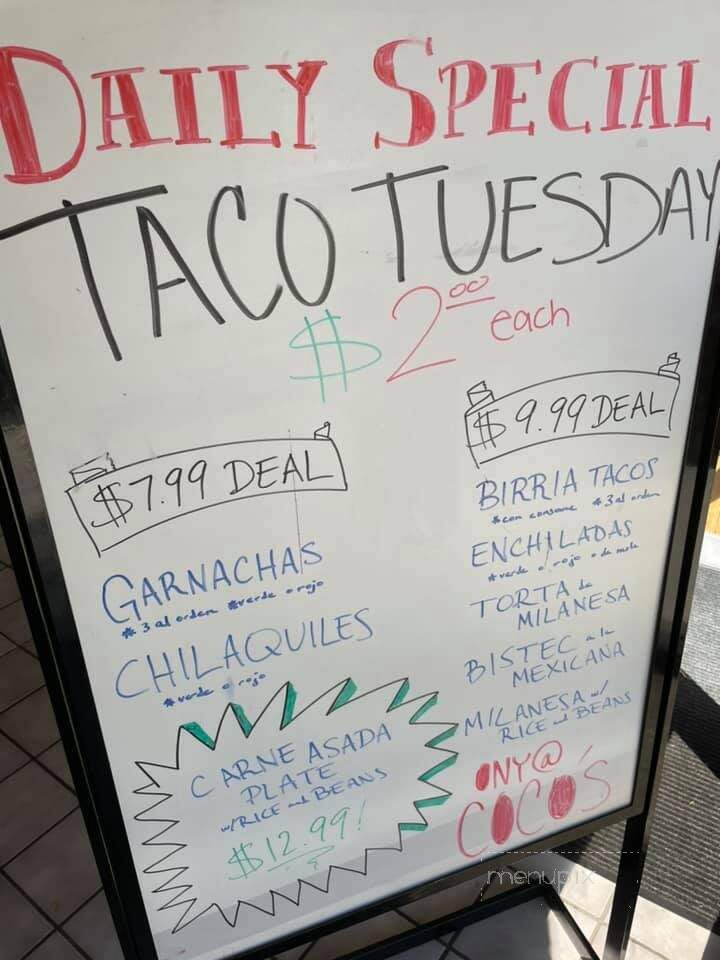 DAILY SPECIAL
TACO TUESDAY
$2.00 each
$7.99 DEAL
GARNACHAS
*3 al orden *verde o rojo
CHILAQUILES
*verde o rojo
CARNE ASADA
PLATE
w/RICE and BEANS
$12.99!
$9.99 DEAL
BIRRIA TACOS
*con consome *3 al orden
ENCHILADAS
*verde o rojo o de mole
TORTA de
MILANESA
BISTEC a la
MEXICANA
MILANESA w/
RICE and BEANS
ONY@
COCO'S
menupix